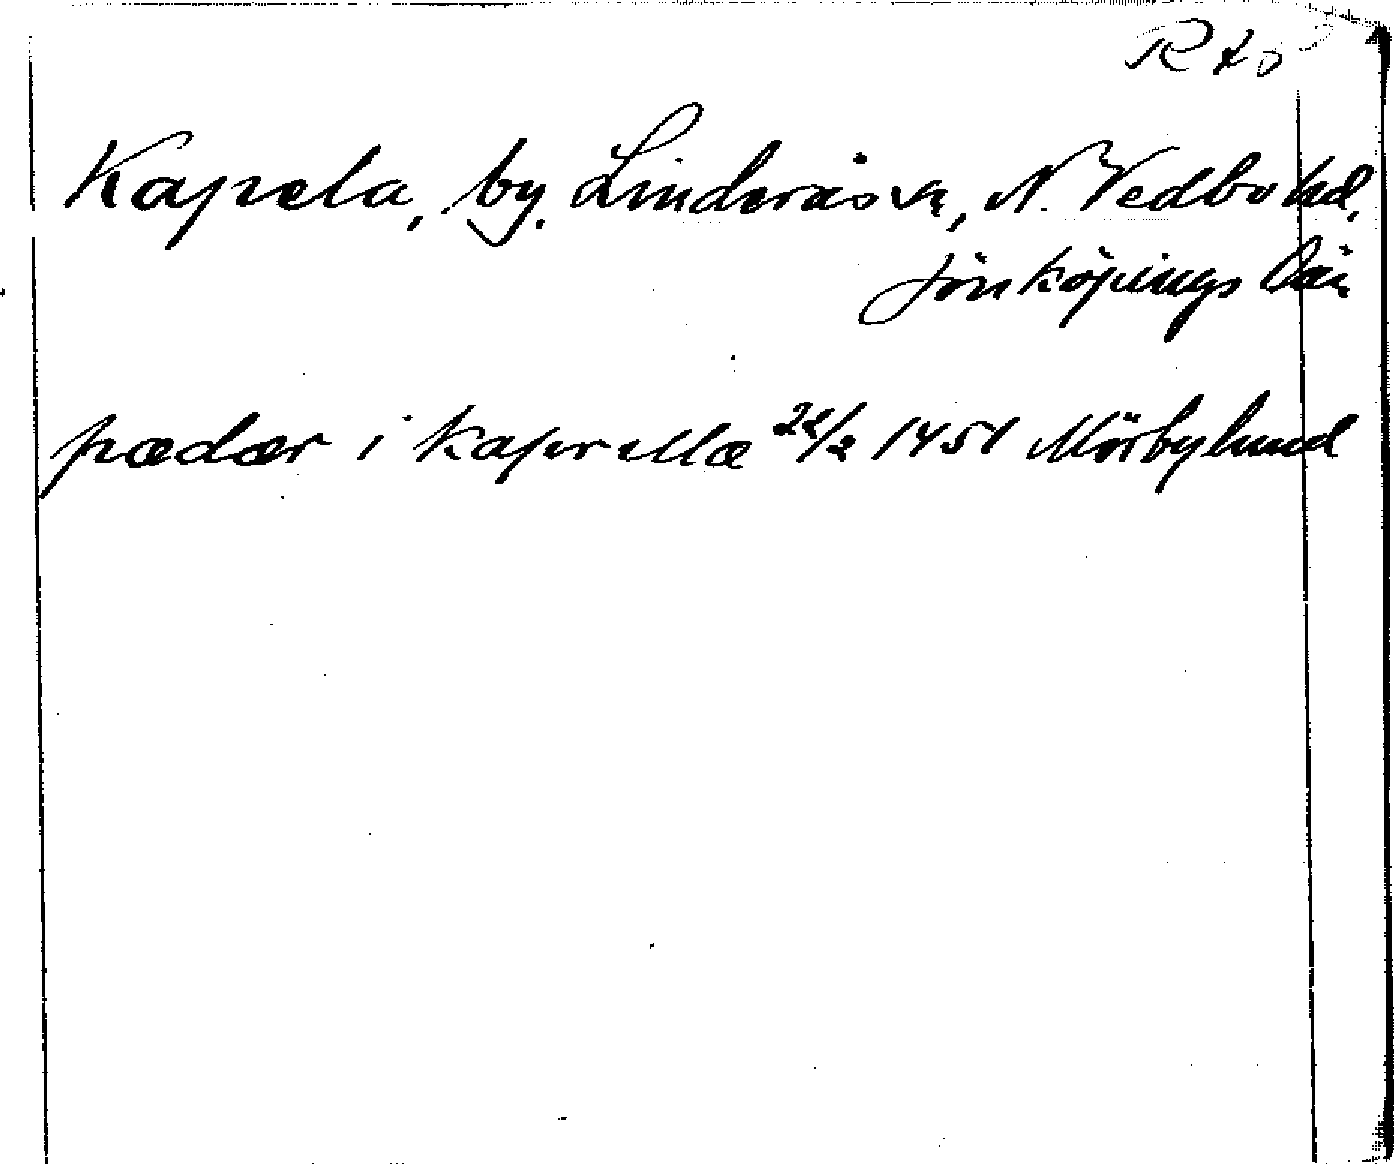 Kapela, by. Linderås sn, N. Vedbo hd,
Jönköpings län
pædær i kaperellæ 22/2 1451 Mörbylund